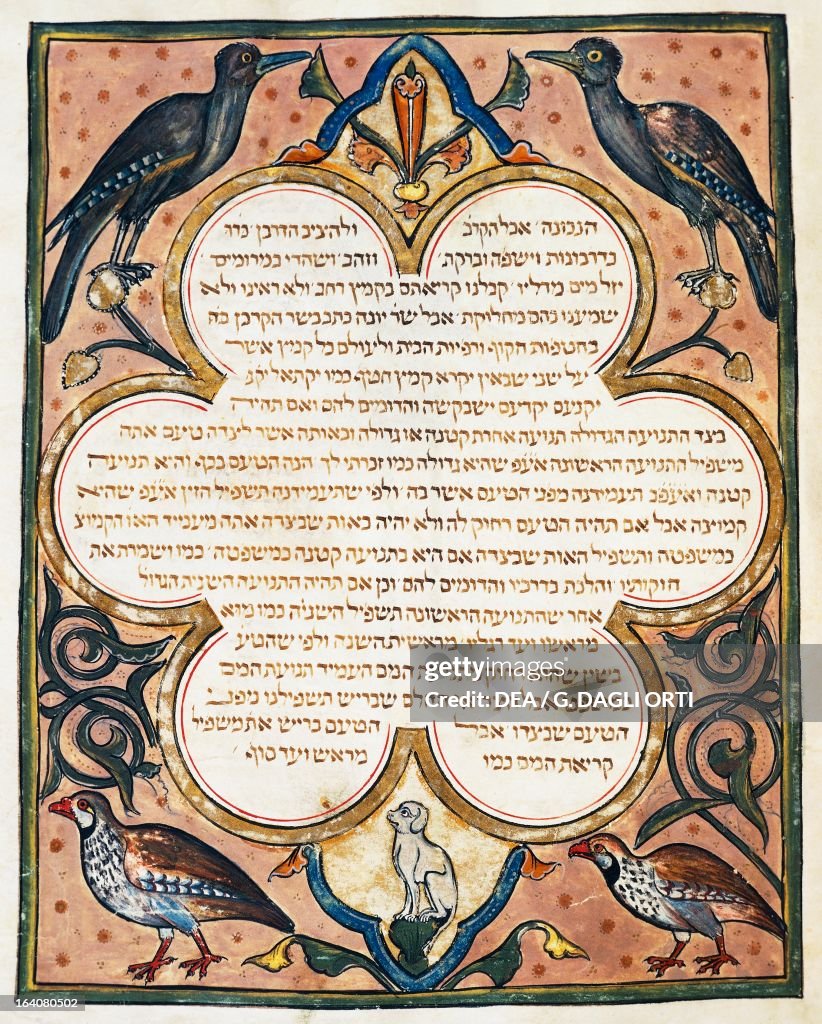 הנכונה אבל הקרוב ולהציב הדרבן כדג
כדרבונות וישפה וברקת וזהב ושהדי במרומים
יזל מים מדליו קבלנו קריאתם בקמץ רחב ולא ראינו ולא
שמיענו בהם מחליקת אבל שר יונה כתב בשר הקרבן כה
בחטפות הקוף ורפיות הבית ולעולם כל קמץ אשר
על שני שבאין יקרא קמץ חטף כמו יקתאל
יקנעם יקדעם ישבקשה והדומים להם ואם תהיה
בצד התנועה הגדולה תנועה אחרת קטנה או גדולה ובאותה אשר לצדה טעם אתה
משפיל התנועה הראשונה שהיא גדולה כמו זכרתי לך הנה הטעם בכף והיא תנועה
קטנה תעמידנה מפני הטעם אשר בה ולפי שתעמידנה תשפיל הזין שהיא
קמוצה אבל אם תהיה הטעם רחוק לה ולא יהיה באות שבצדה אתה מעמיד האו הקמוצ
כמשפטה ותשפיל האות שבצדה אם היא בתנועה קטנה כמשפטה כמו ושמרת את
חוקותיו והלכת בדרכיו והדומים להם וכן אם תהיה התנועה השנית הגדול
אחר שהתנועה הראשונה תשפיל השניה כמו מוצא
מראשו ועד רגליו מראשית השנה ולפי שהטע
בשין המם העמיד תנועת המם
שבריש תשפילנו מפני
הטעם שבצדו אבל הטעם בריש את משפיל
קריאת המם כמו מראש ועד סוף
gettyimages®
Credit: DEA / G. DAGLI ORTI
164080502